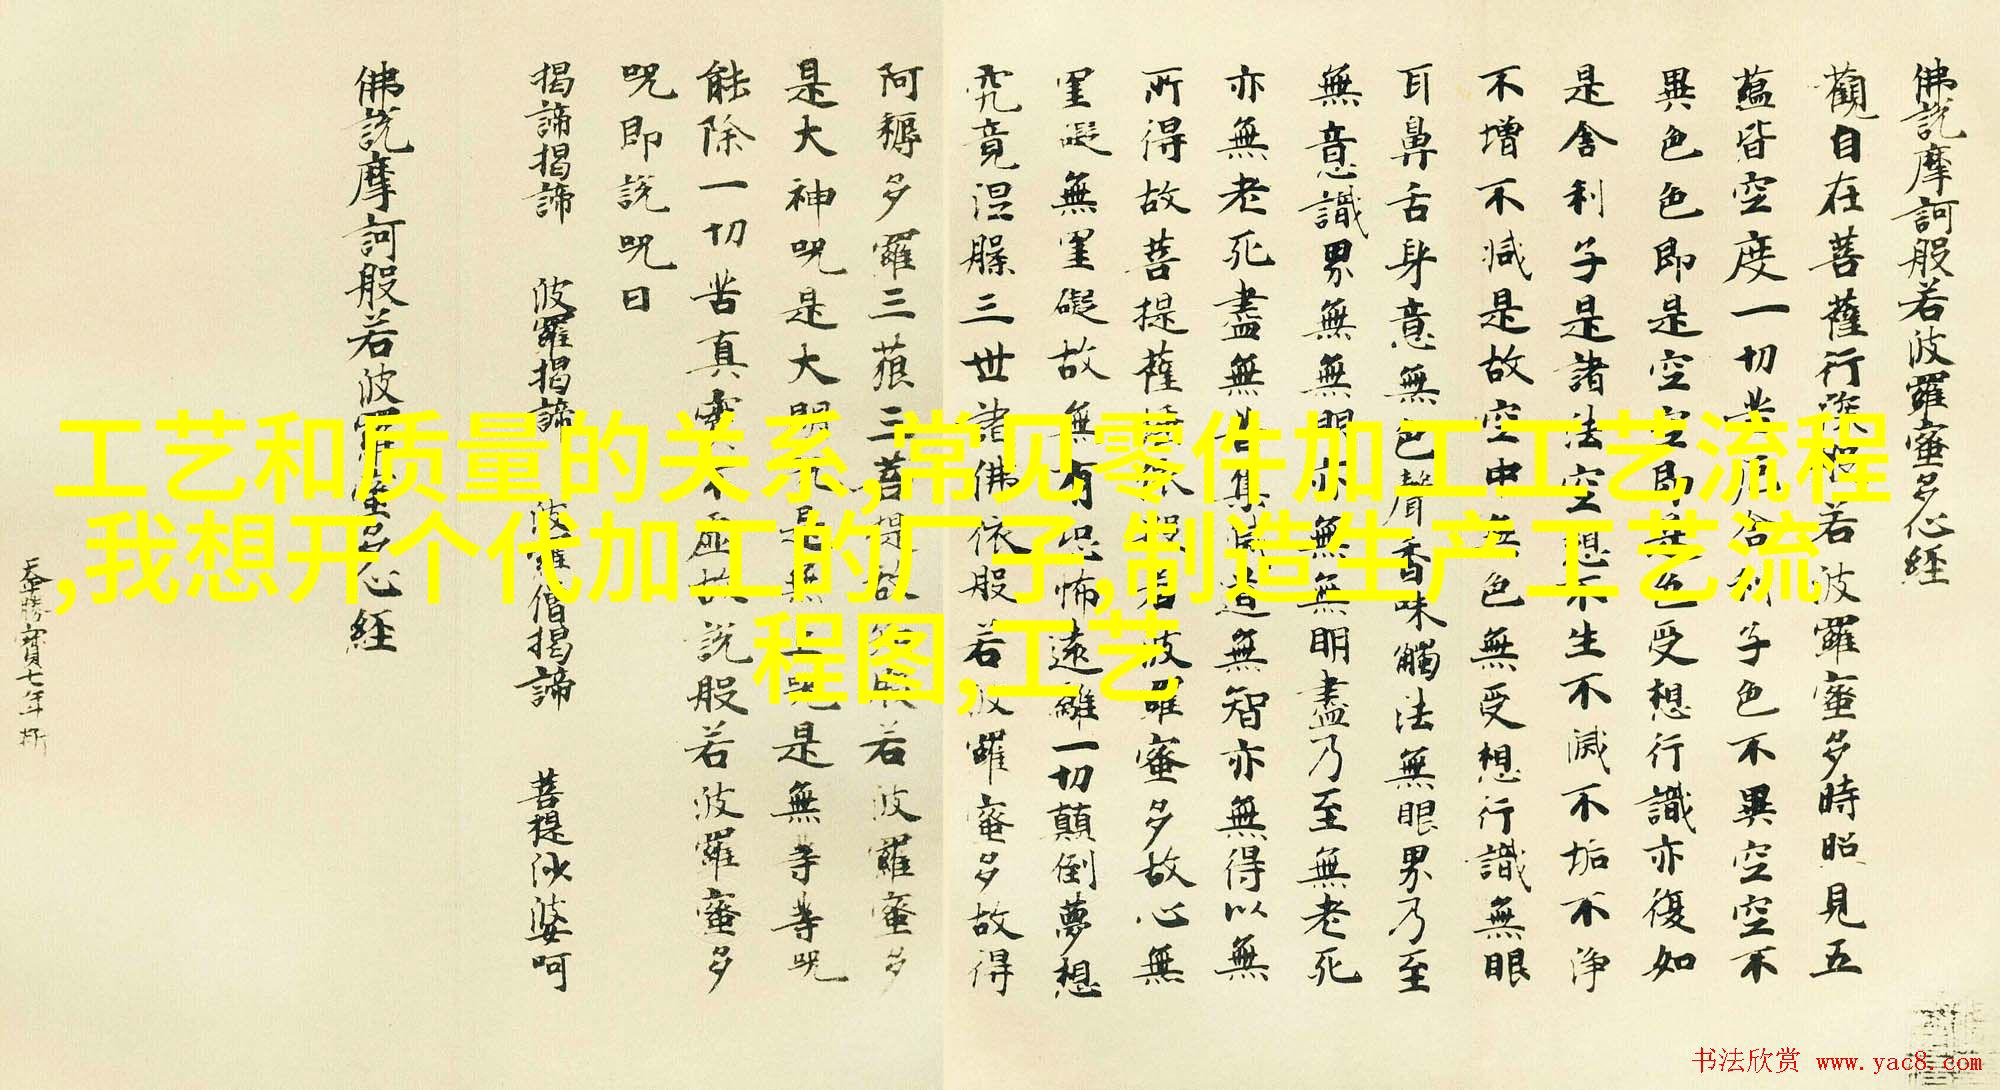 佛說摩訶般若波羅蜜多心經
觀自在菩薩行深般若波羅蜜多時照見五
蘊皆空度一切苦厄舍利子色不異空空不
異色色即是空空即是色受想行識亦復如
是舍利子是諸法空想不生不滅不垢不淨
不增不減是故空中無色無受想行識無眼
耳鼻舌身意無色聲香味觸法無眼界乃至
無意識界無無明亦無無明盡乃至無老死
亦無老死盡無苦集滅道無智亦無得以無
所得故菩提薩埵依般若波羅蜜多故心無
罣礙無罣礙故無有恐怖遠離一切顛倒夢想
究竟涅槃三世諸佛依般若波羅蜜多故得
阿耨多羅三藐三菩提故知般若波羅蜜多
是大神呪是大明呪是無上呪是無等等呪
能除一切苦真實不虛故說般若波羅蜜多
呪即說呪曰
揭諦揭諦 波羅揭諦 波羅僧揭諦 菩提莎婆呵
佛說摩訶般若波羅蜜多心經
天平勝寶七年
工艺和质量的关系,常见零件加工工艺流程
,我想开个代加工的厂子,制造生产工艺流
程图,工艺
书法欣赏 www.yac8.com